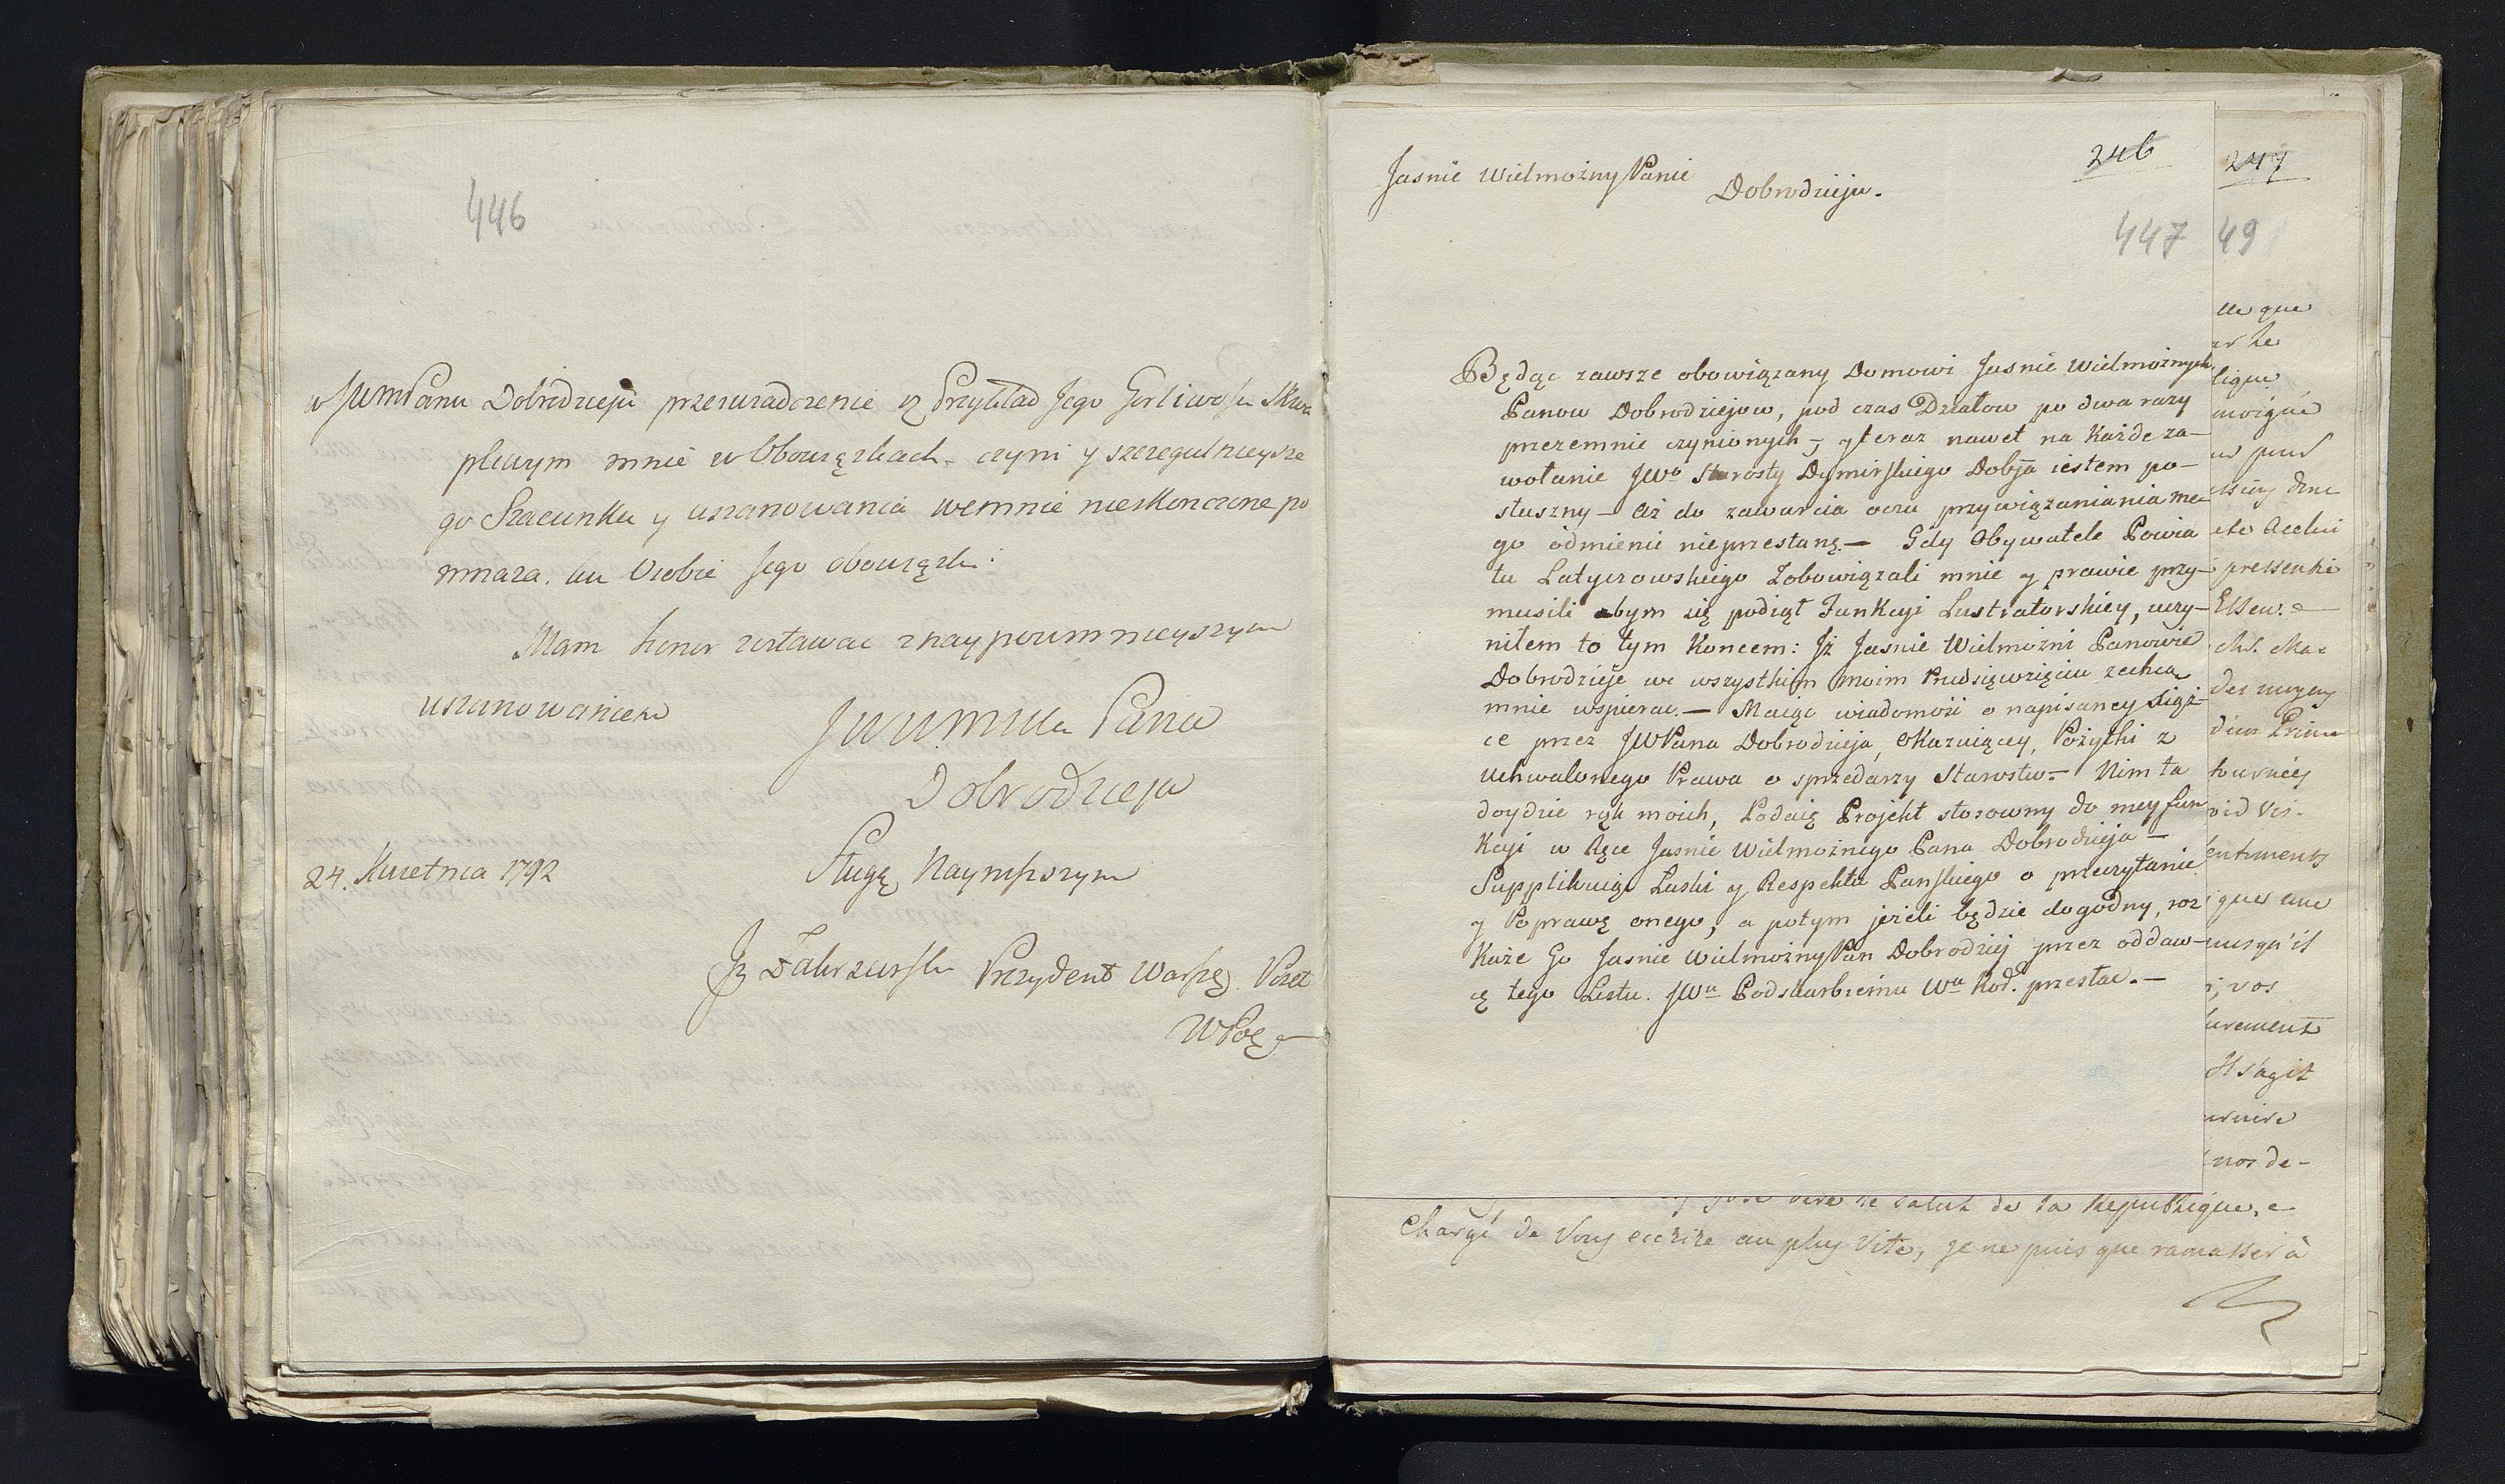 446
w JWWPanu Dobrodzieju przeswiadczenie yz Przykład Jego Gorliwości
plewym mnie w Obowiązkach. czyni y szeregulnieysze
go Szacunku y uszanowania wemnie nieskonczone po
mnaza. ku Osobie Jego obowiązki.
Mam honor zostawac z naypowinnieyszym
uszanowaniem
Pana
Dobrodzieja
24. Kwietnia 1792
Sługą Nayniższym
Prezydent
246
Jasnie Wielmożny Panie
Dobrodzieju.
447
Będąc zawsze obowiązany Domowi Jasnie Wielmożnych
Panow Dobrodziejow, pod czas Działow po dwa razy
przezemnie czynionych, y teraz nawet na każde za-
wołanie JWo Starosty Dymirskiego Dobja iestem po-
słuszny — aż do zawarcia oczu przywiązaniania me-
go odmienić nieprzestanę. — Gdy Obywatele Powia
tu Latyczowskiego Zobowiązali mnie y prawie przy-
musili abym się podiął Funkcyi Lustratorskiey, uczy-
niłem to tym Koncem: Iż Jasnie Wielmożni Panowie
Dobrodzieje we wszystkim moim Przedsięwzięciu zechcą
mnie wspierac. — Maiąc wiadomość o napisaney Xiąż-
ce przez JWPana Dobrodzieja, okazuiącey, Pożytki z
uchwalonego Prawa o sprzedarzy Starostw — Nim ta
doydzie rąk moich, Podaię Projekt stosowny do mey fun
kcyi w Ręce Jasnie Wielmożnego Pana Dobrodzieja —
Supplikuiąc Łaski y Respektu Pańskiego o przeczytanie
y Poprawę onego, a potym jeżeli będzie dogodny, roz
każe Go Jasnie Wielmożny Pan Dobrodziej przez oddaw-
cę tego Listu. JWu Podskarbiemu Wu Kor. przesłac. —
247
49
que
pressenti
des moyens
Prince
entiments
ques une
jusqu'il
vos
urement
Il s'agit
nos de-
salut de la Republique,
Chargé de Vous ecrire au plus Vite, je ne puis que ramasser à